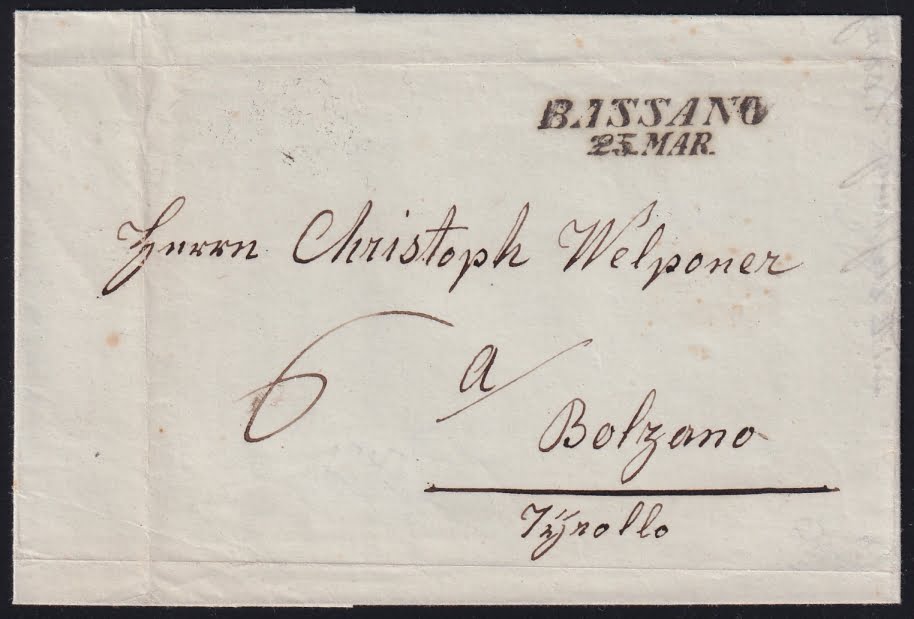 BASSANO
25.MAR.
Herrn Christoph Welponer
6
a/
Bolzano
Tÿrollo